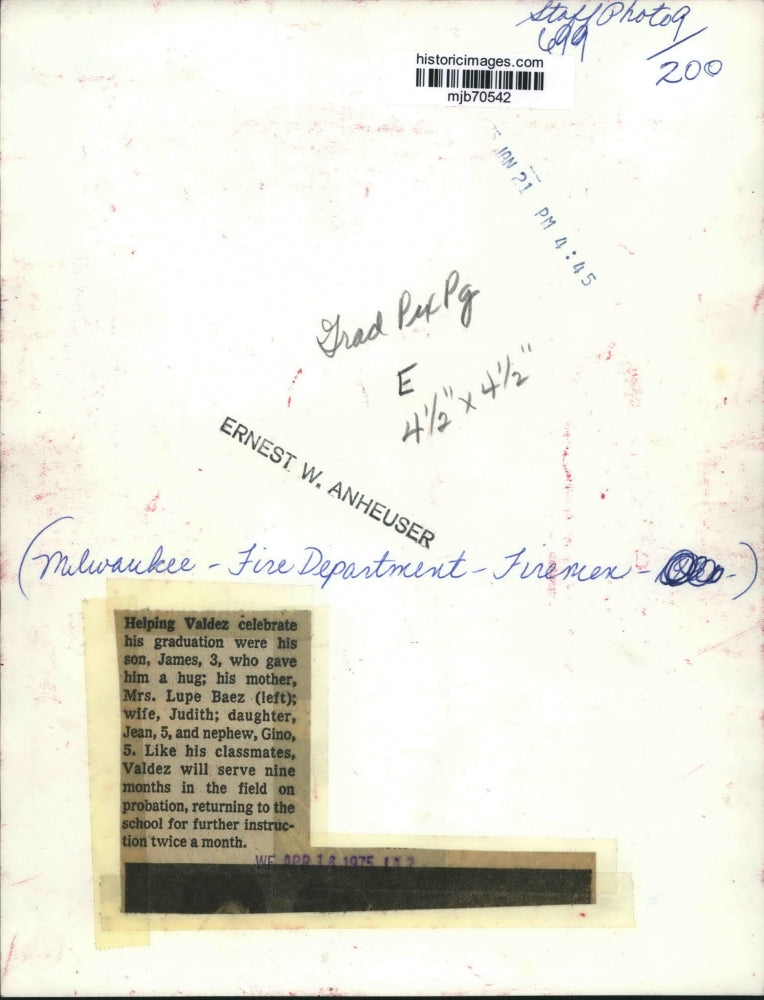 Staff Photog
699 / 200
historicimages.com
mjb70542
75 JAN 21 PM 4:45
Grad Pix Pg
E
4 1/2" x 4 1/2"
ERNEST W. ANHEUSER
(Milwaukee - Fire Department - Firemen - )
Helping Valdez celebrate
his graduation were his
son, James, 3, who gave
him a hug; his mother,
Mrs. Lupe Baez (left);
wife, Judith; daughter,
Jean, 5, and nephew, Gino,
5. Like his classmates,
Valdez will serve nine
months in the field on
probation, returning to the
school for further instruc-
tion twice a month.
WE APR 16 1975